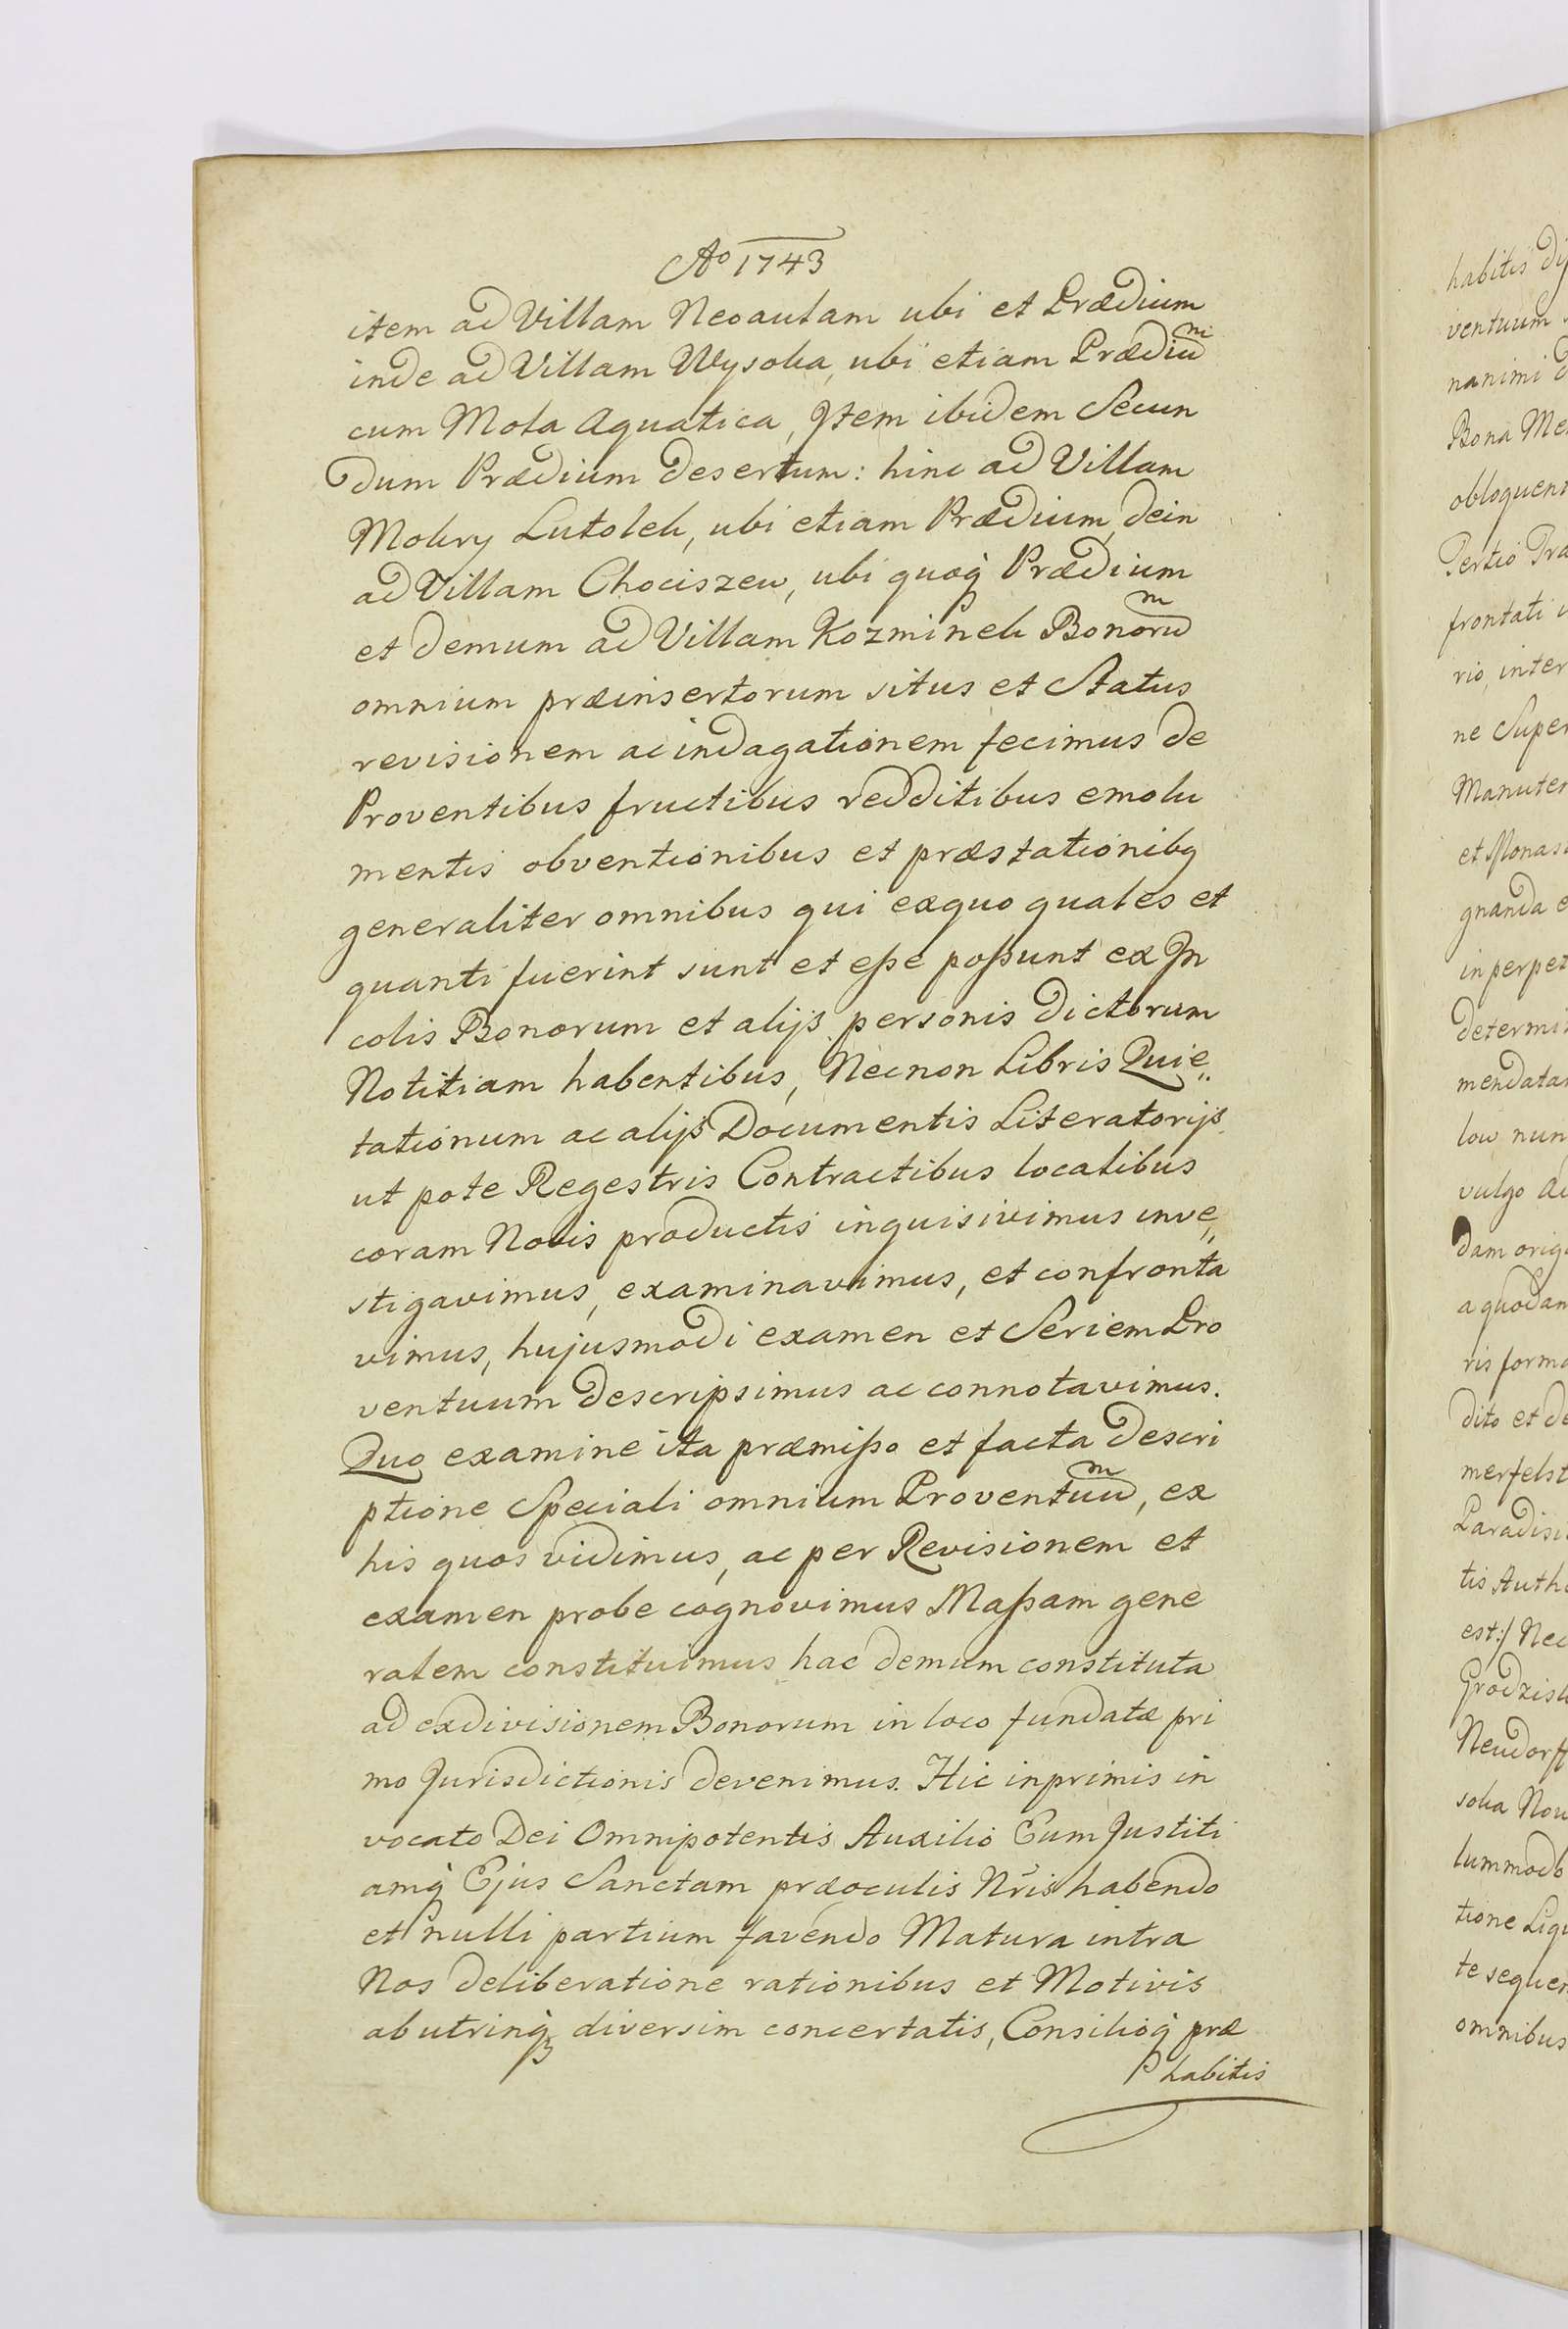 Ao 1743
item ad Villam Neoaulam ubi et Prædium
inde ad Villam Wysoka, ubi etiam Prædiu͞m
cum Mola Aquatica, Item ibidem Secun
dum Prædium desertum: hinc ad Villam
Mokry Lutolek, ubi etiam Prædium, dein
ad Villam Chociszew, ubi quoq́ Prædium
et demum ad Villam Kozminek Bonoru͞m
omnium præinsertorum situs et Status
revisionem ac indagationem fecimus de
Proventibus fructibus redditibus emolu
mentis obventionibus et præstationibq
generaliter omnibus qui exquo quales et
quanti fuerint sunt et eße poßunt ex In
colis Bonorum et alijs personis dictorum
Notitiam habentibus, Necnon Libris Quie„
tationum ac alijs Documentis Literatorijs
ut pote Regestris Contractibus localibus
coram Nobis productis inquisivimus inve„
stigavimus, examinavimus, et confronta
vimus, hujusmodi examen et Seriem Pro
ventuum descripsimus ac connotavimus.
Quo examine ita præmißo et facta descri
ptione Speciali omnium Proventuu͞m, ex
his quos vidimus, ac per Revisionem et
examen probe cognovimus Maßam gene
ralem constituimus hac demum constituta
ad exdivisionem Bonorum in loco fundatæ pri
mo Jurisdictionis devenimus. Hic inprimis in
vocato Dei Omnipotentis Auxilio Eum Justiti
amq́ Ejus Sanctam præoculis Nr̃is habendo
et nulli partium favendo Matura intra
Nos deliberatione rationibus et Motivis
ab utrinq́ꝫ diversim concertatis, Consilioq́ præ
habitis
habitis
ventuum
nanimi
Bona
frontati
rio, inter
ne
gnanda
low nun
vulgo
dam
ris
dito et
tis
est:/ Nec
Neudorff
soka
tione
omnibus